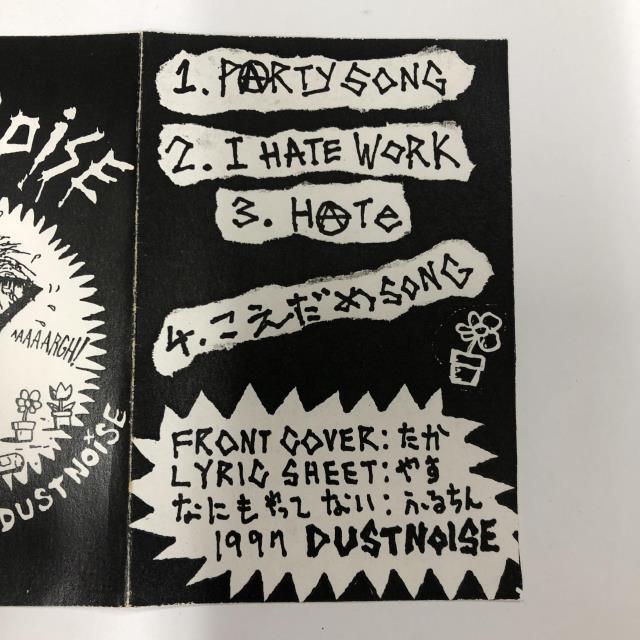 OISE
AAAAARGH!
DUSTNOISE
1. PARTY SONG
2. I HATE WORK
3. HATe
4. こえだめSONG
FRONT COVER: たか
LYRIC SHEET: やす
なにもやってない: ふるちん
1997 DUSTNOISE